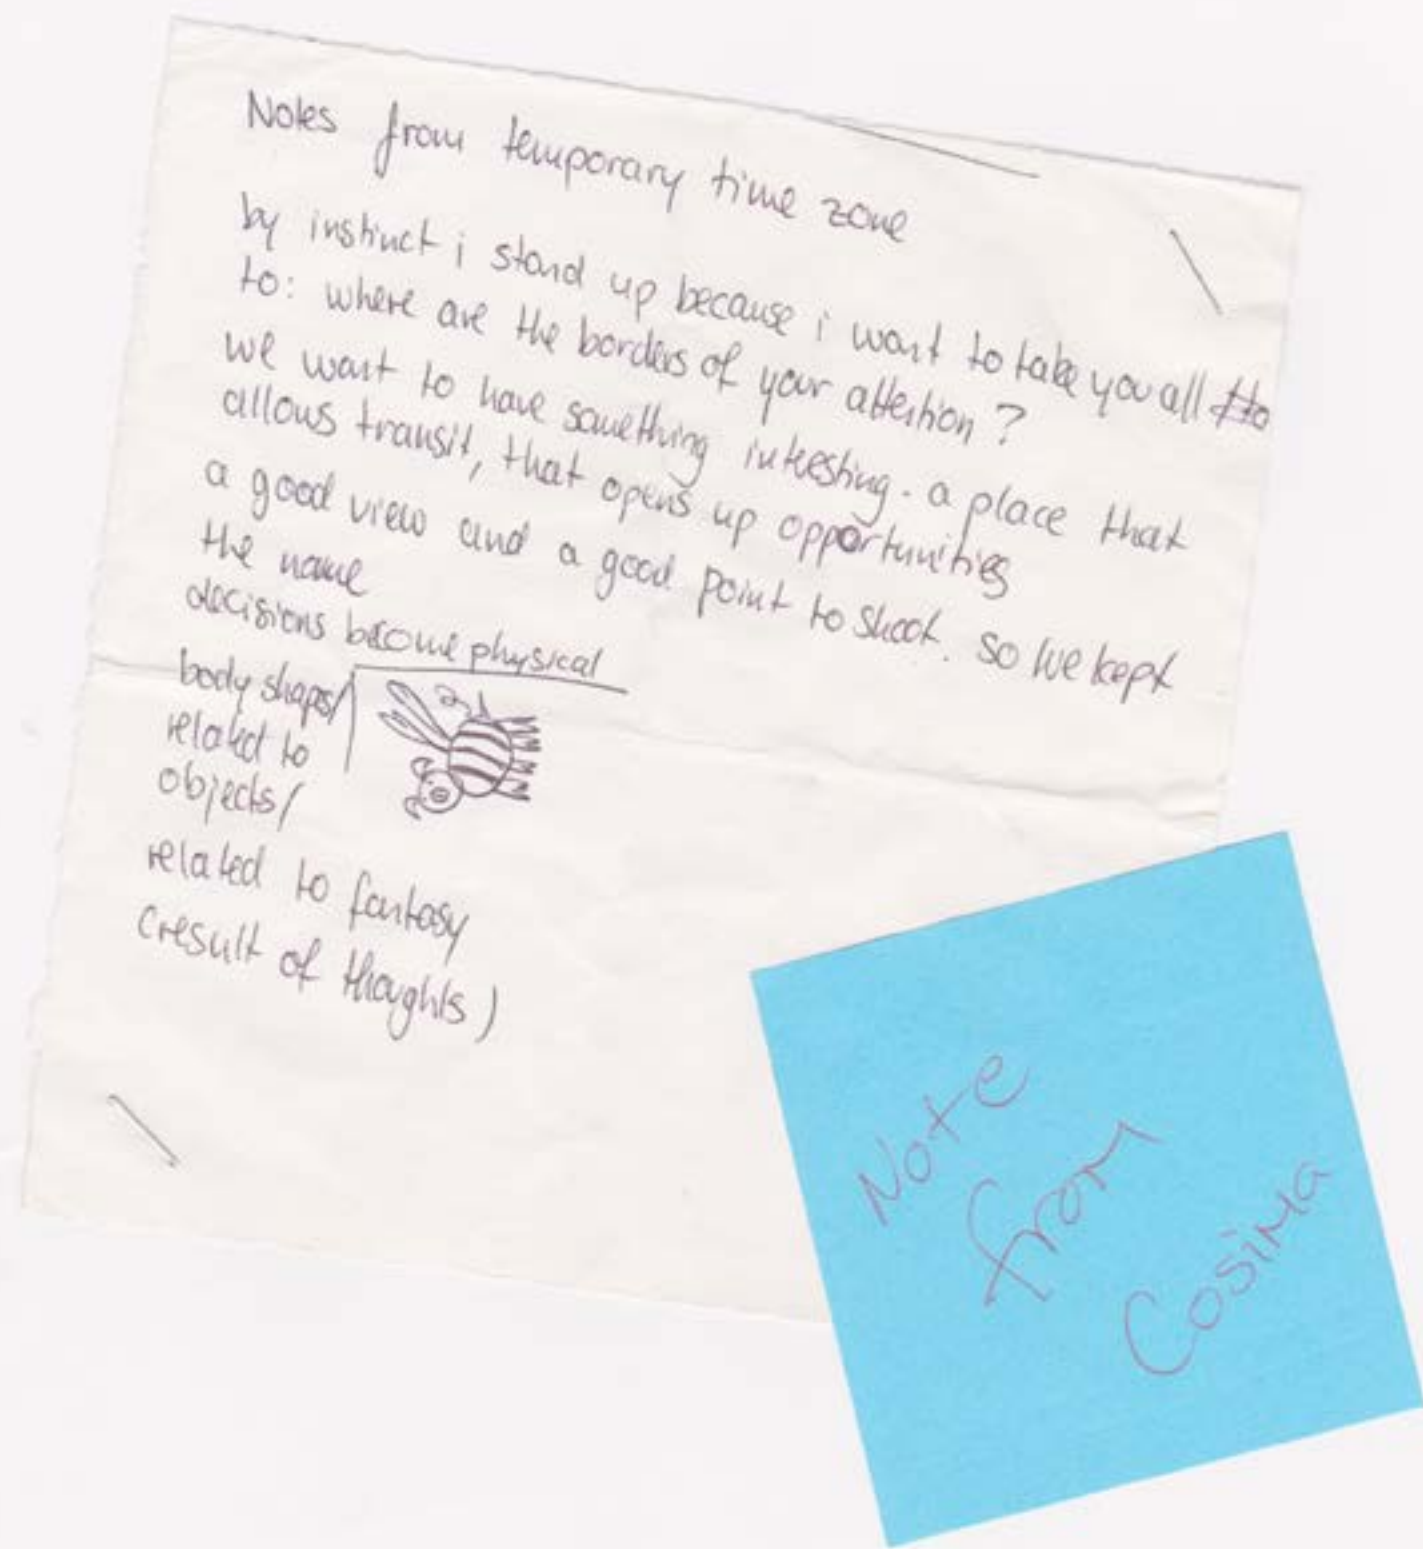 Notes from temporary time zone
by instinct i stand up because i want to take you all to
to: where are the borders of your attention?
we want to have something interesting. a place that
allows transit, that opens up opportunities
a good view and a good point to shoot. so we kept
the name
decisions become physical
body shapes/
related to
objects/
related to fantasy
(result of thoughts)
Note
from
Cosima